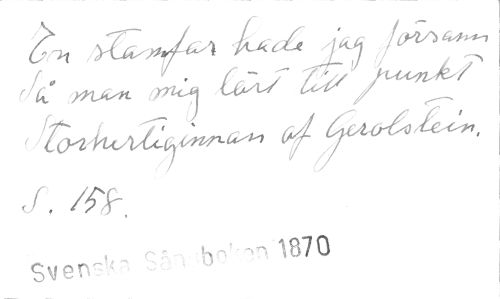 En stamfar hade jag försann
Så man mig lärt till punkt
Storhertiginnan af Gerolstein.
S. 158.
Svenska Sångboken 1870